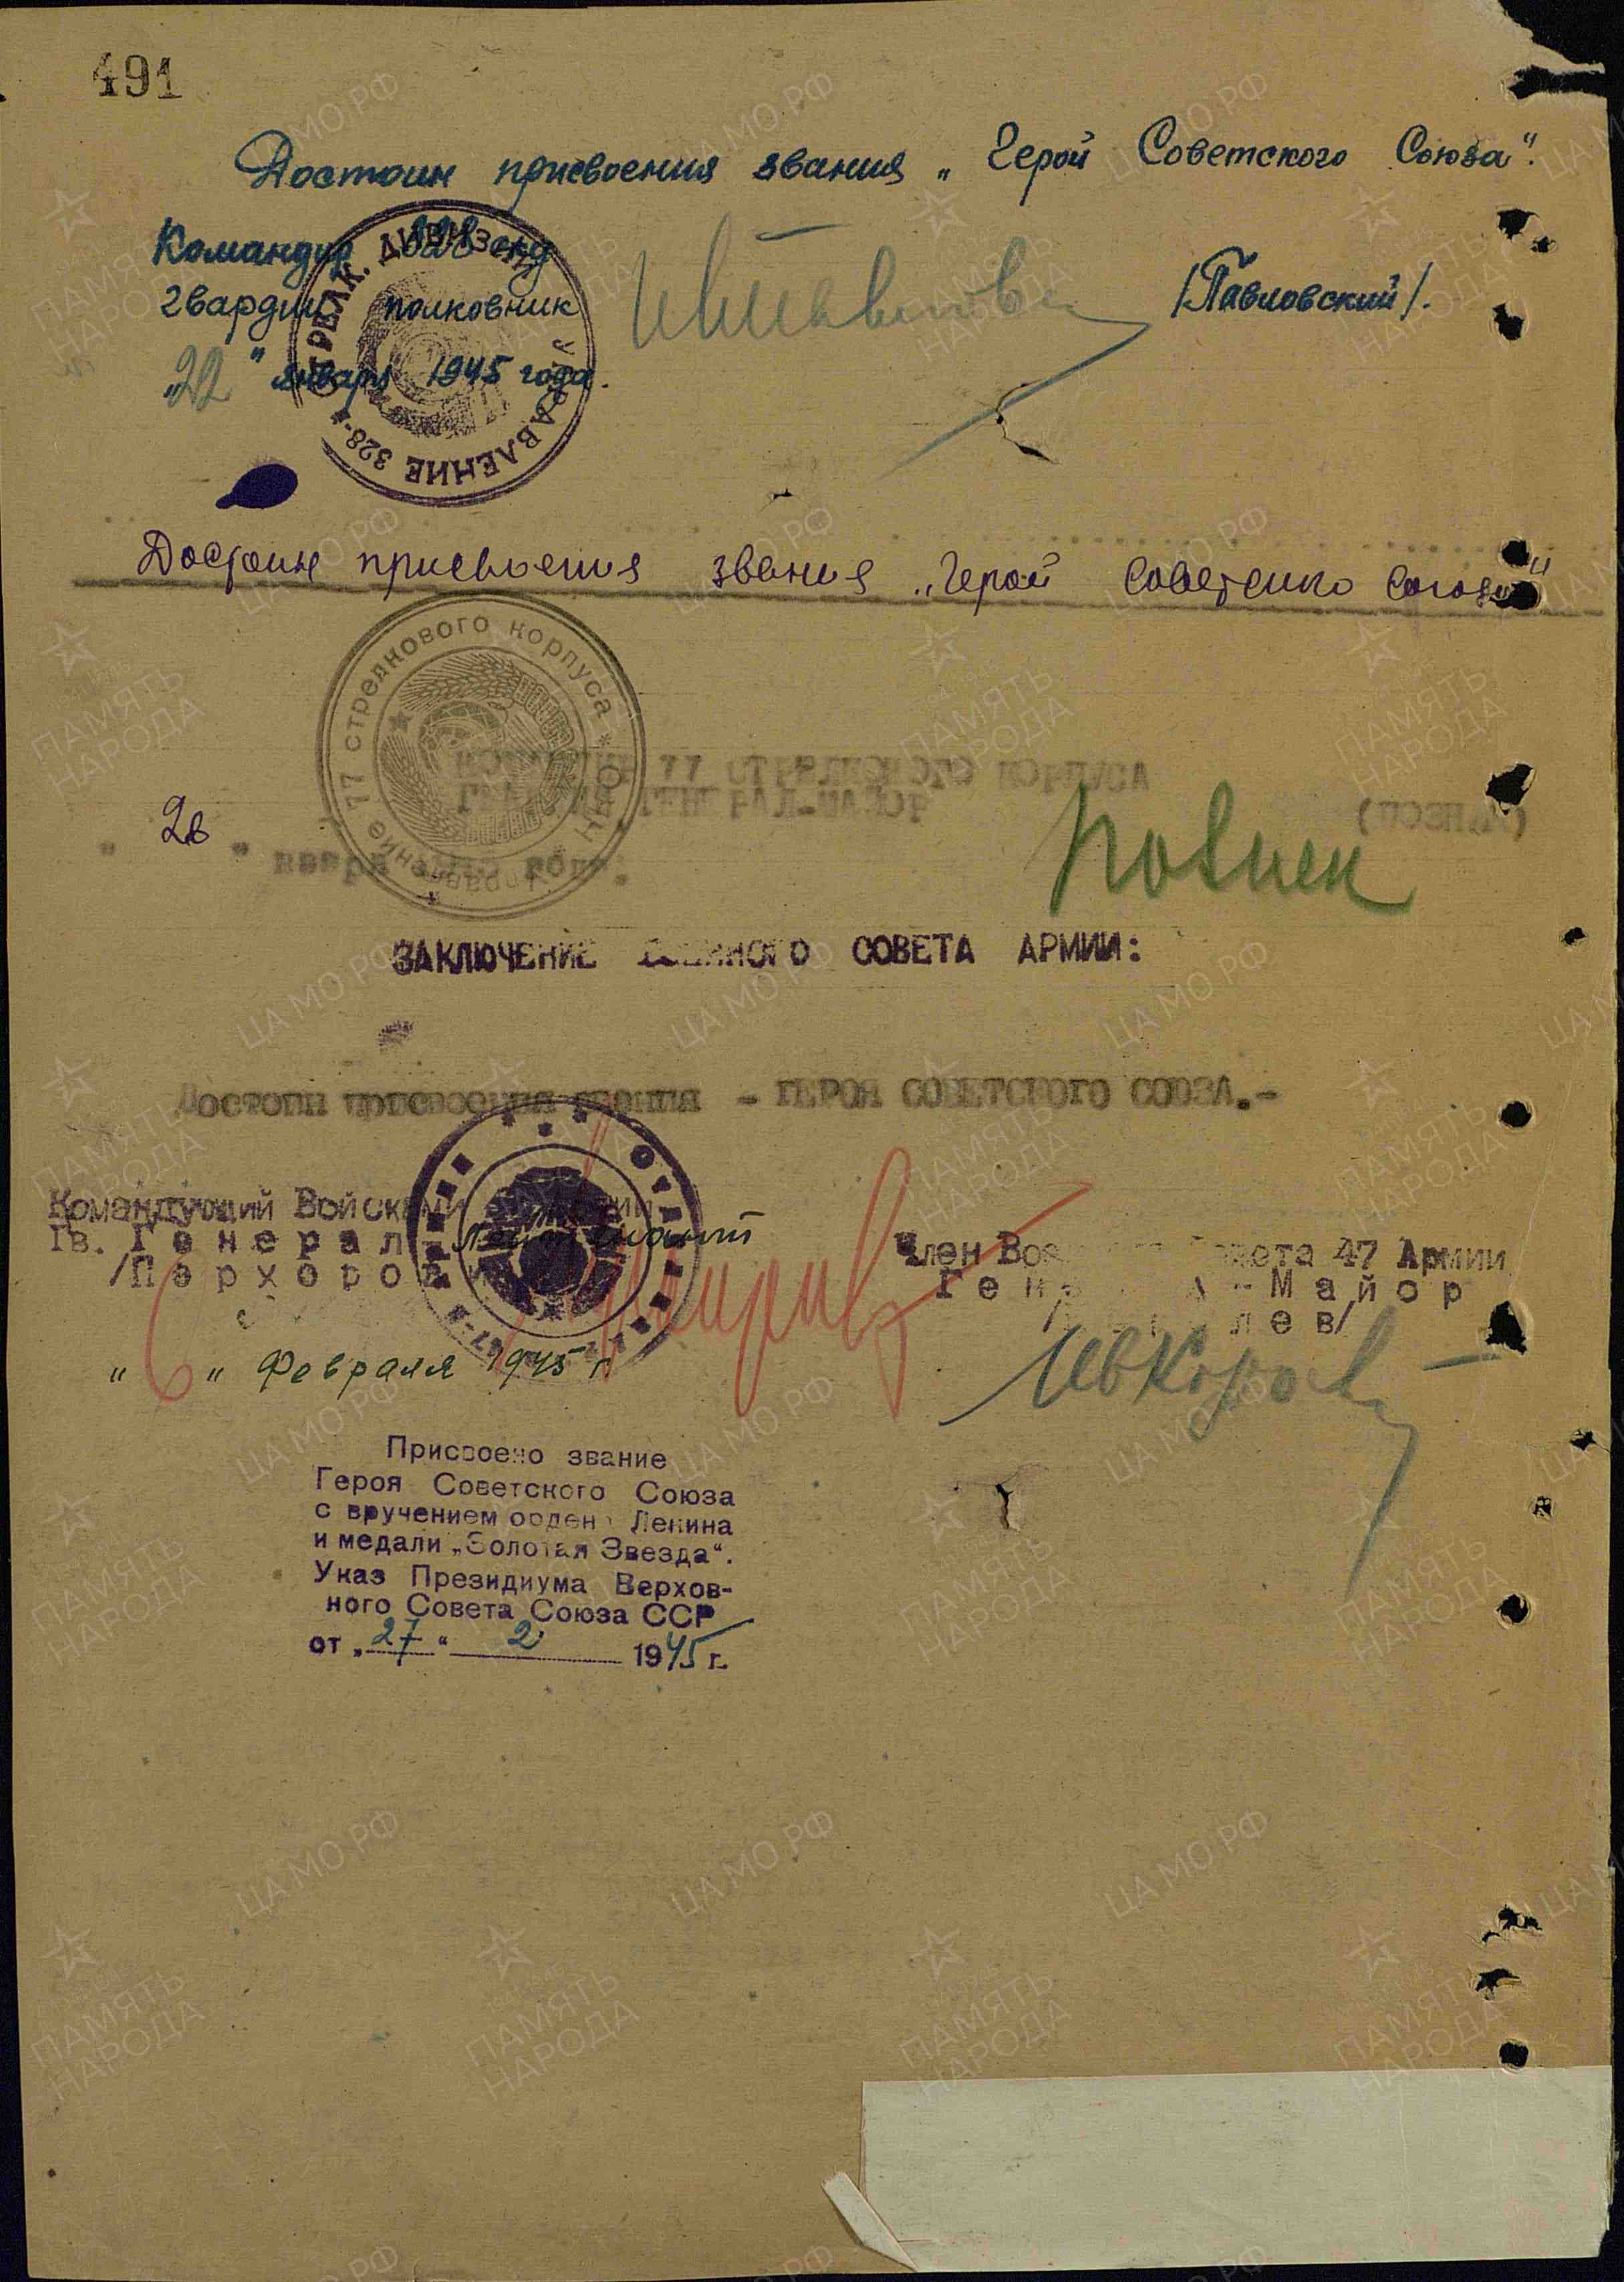 491
Достоин присвоения звания „Герой Советского Союза".
Командир 328 скд
гвардии полковник /Павловский/.
„22" января 1945 года.
СТРЕЛК. ДИВИЗИЯ УПРАВЛЕНИЕ 328-
Достоин присвоения звания „Герой Советского Союза"
Управление 77 стрелкового корпуса * НКО *
КОМАНДИР 77 СТРЕЛКОВОГО КОРПУСА
ГЕНЕРАЛ-МАЙОР (ПОЗНЯК)
Позняк
" 26 " января 1945 года.
ЗАКЛЮЧЕНИЕ ВОЕННОГО СОВЕТА АРМИИ:
Достоин присвоения звания - ГЕРОЯ СОВЕТСКОГО СОЮЗА.-
Командующий Войсками
Гв. Генерал- лейтенант
/Перхоров
Член Военного Совета 47 Армии
Генерал-Майор
лев/
„ 6 " Февраля 1945 г.
Присвоено звание
Героя Советского Союза
с вручением орден Ленина
и медали „Золотая Звезда".
Указ Президиума Верхов-
ного Совета Союза ССР
от „27" 2 1945 г.
ПАМЯТЬ НАРОДА
ЦА МО РФ